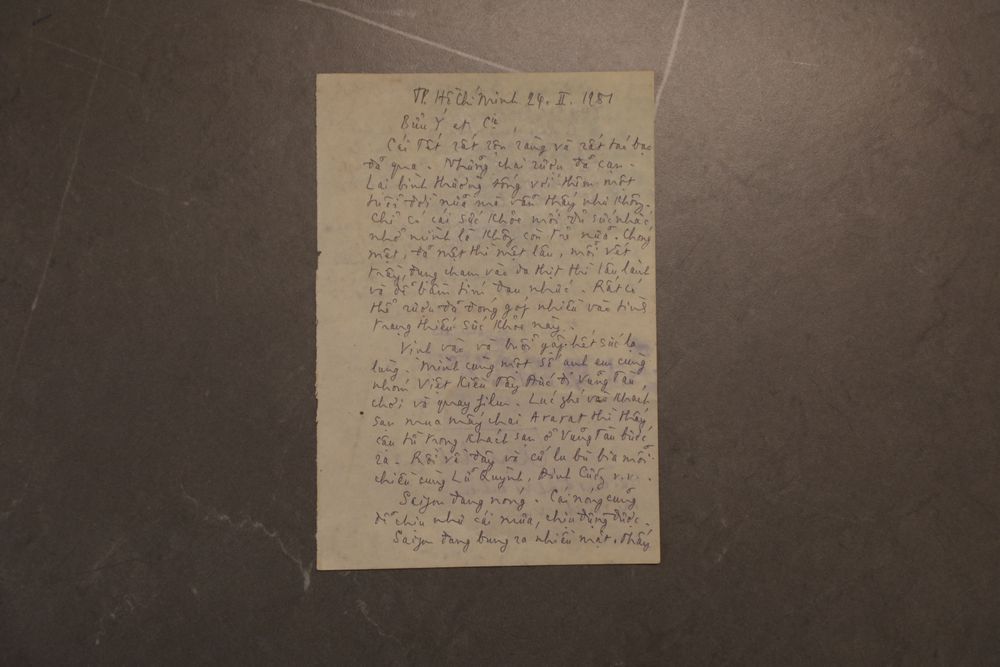 TP. Hồ Chí Minh 24. II. 1981
Bửu Ý et Cie,
Cái Tết rất rộn ràng và rất táo bạo
đã qua. Những chai rượu đã cạn.
Lại bình thường sống với thêm một
tuổi đời nữa mà vẫn thấy như không.
Chỉ có cái sức khỏe mới đủ sức nhắc
nhở mình là không còn trẻ nữa. Chóng
mệt, đã mệt thì mệt lâu, mỗi vết
trầy, đụng chạm vào da thịt thì lâu lành
và dễ bầm tím đau nhức. Rất có
thể rượu đã đóng góp nhiều vào tình
trạng thiếu sức khỏe này.
Vinh vào và buổi gặp hết sức lạ
lùng. Mình cùng một số anh em cùng
nhóm Việt Kiều Tây Đức đi Vũng Tàu
chơi và quay film. Lúc ghé vào khách
sạn mua mấy chai Ararat thì thấy
cậu từ trong khách sạn ở Vũng Tàu bước
ra. Rồi về đây và cứ lu bù bia mỗi
chiều cùng Lữ Quỳnh, Đinh Cường v.v.
Saigon đang nóng. Cái nóng cũng
dễ chịu như cái mùa, chịu đựng được.
Saigon đang bung ra nhiều mặt. Thấy